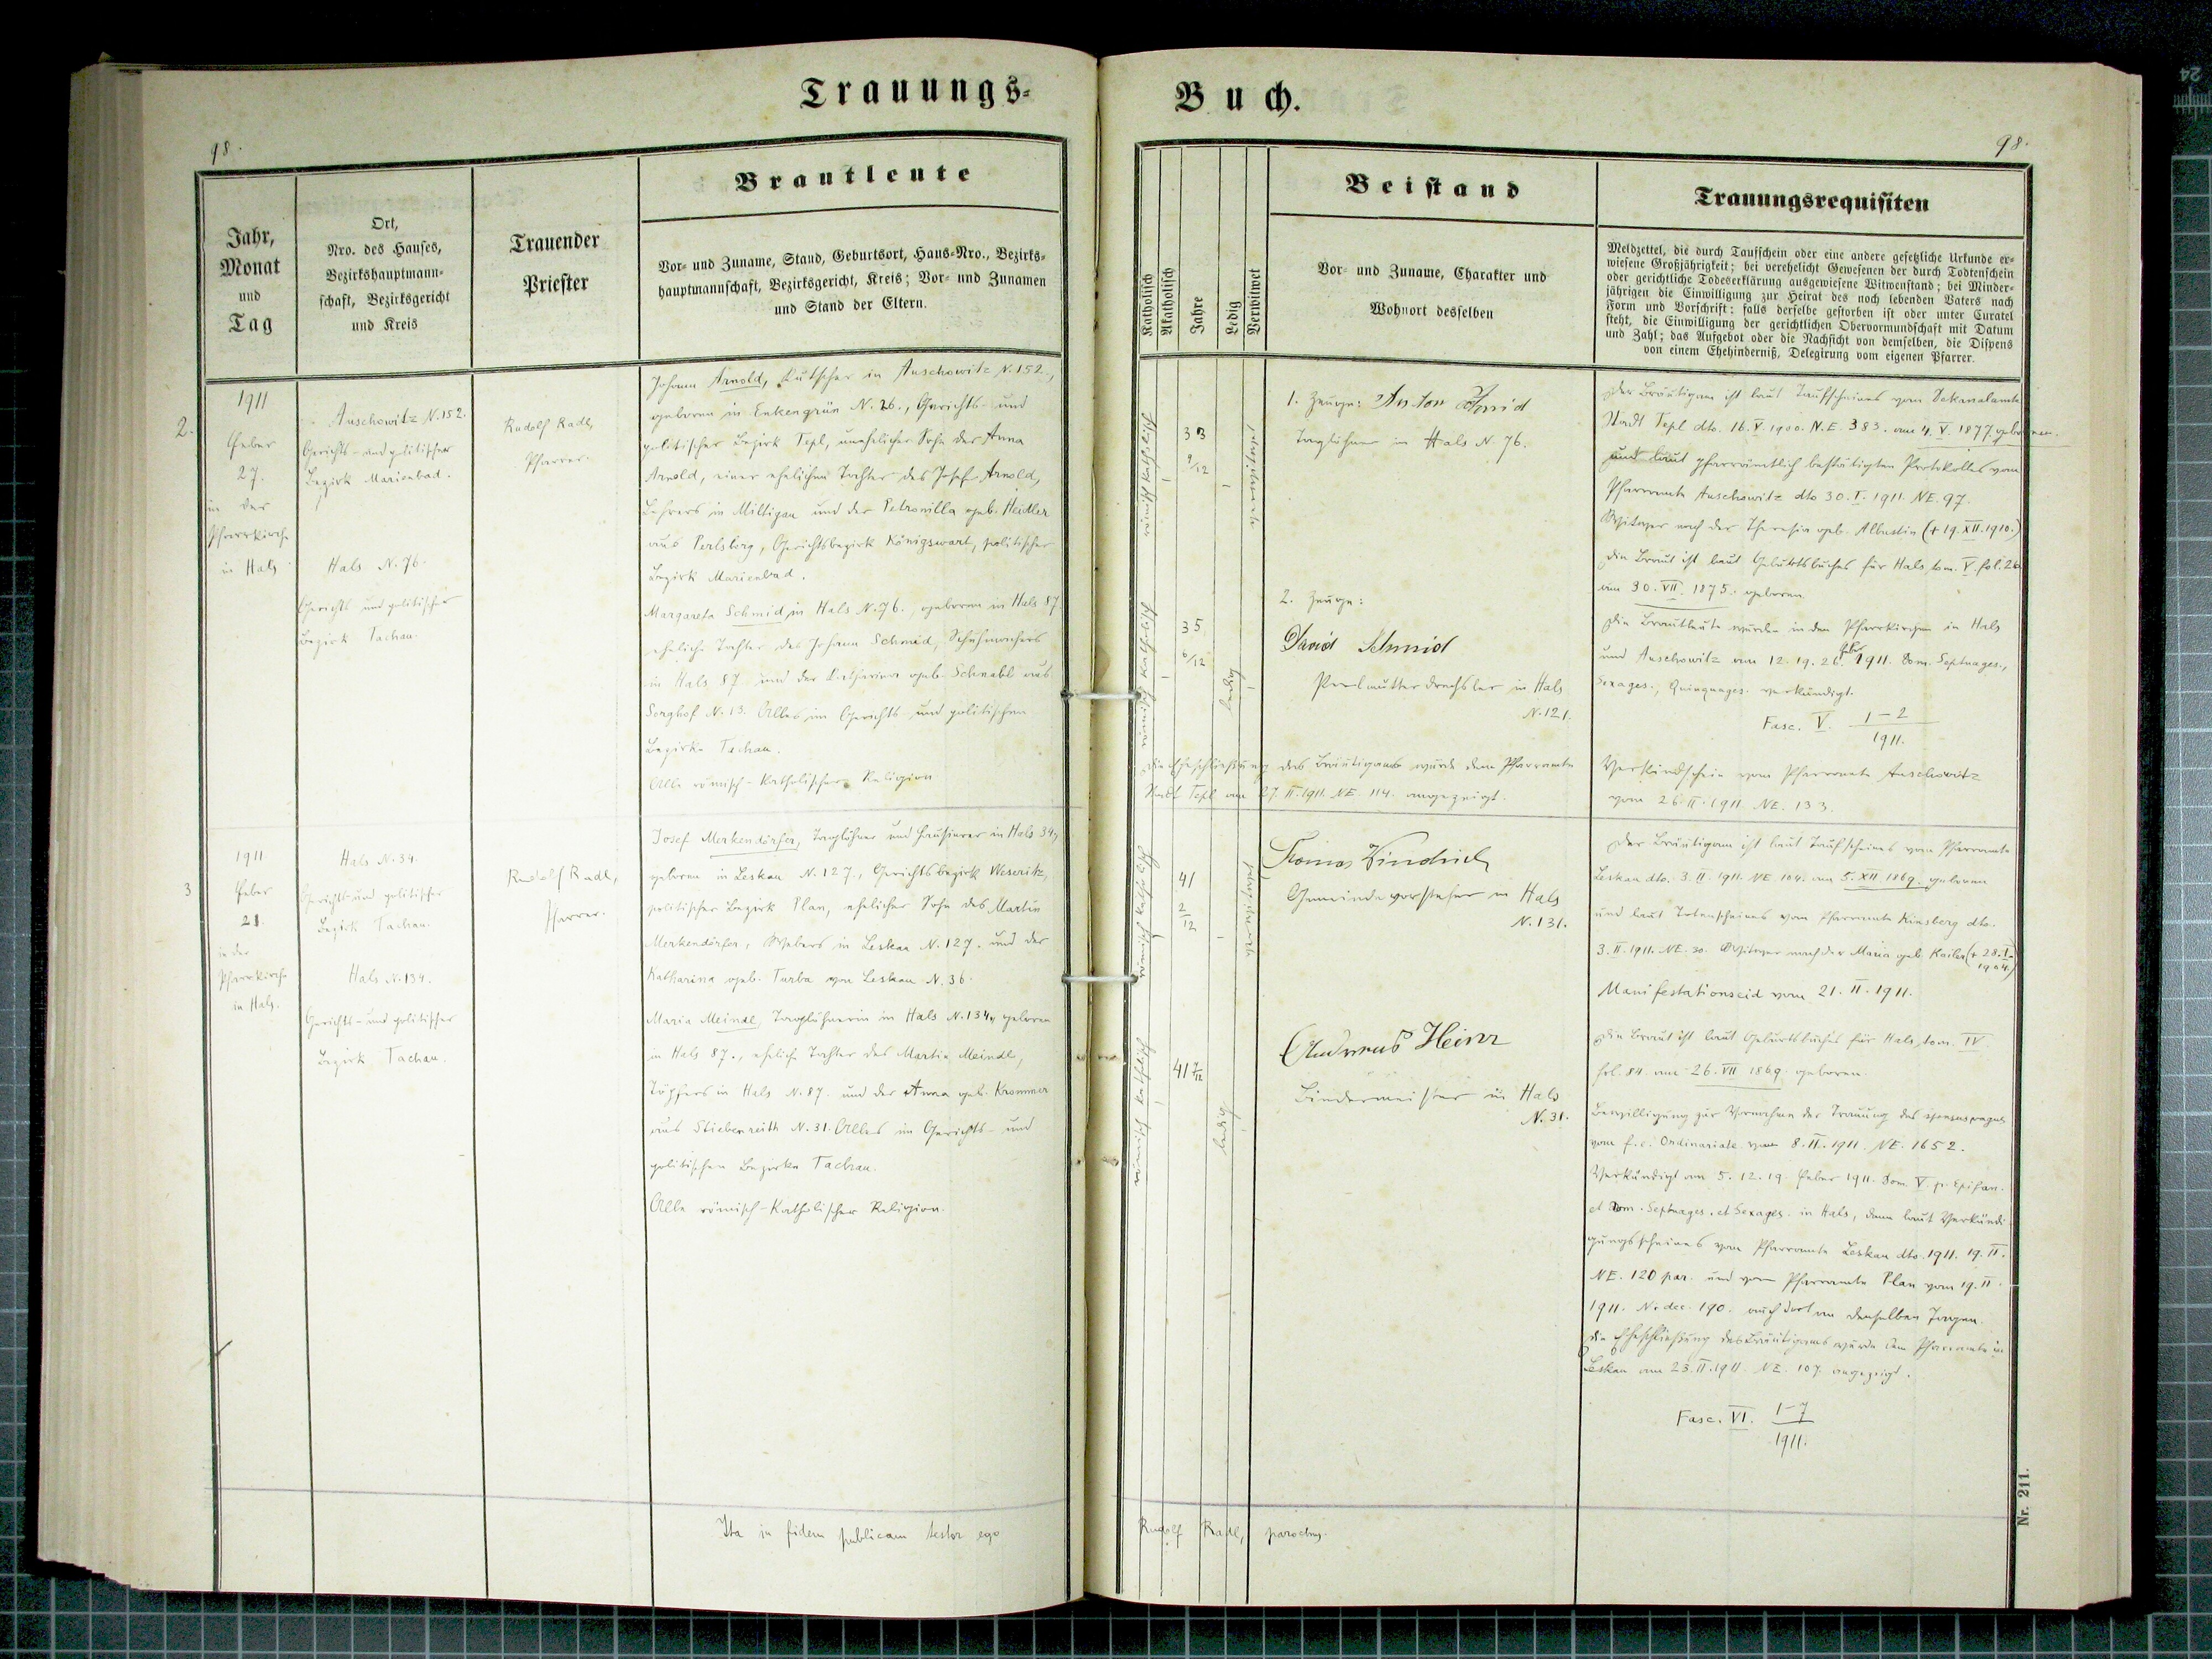 Trauungs-
98.
Jahr,
Monat
und
Tag
Ort,
Nro. des Hauses,
Bezirkshauptmann-
schaft, Bezirksgericht
und Kreis
Trauender
Priester
Brautleute
Vor- und Zuname, Stand, Geburtsort, Haus-Nro., Bezirks-
hauptmannschaft, Bezirksgericht, Kreis; Vor- und Zunamen
und Stand der Eltern.
2.
1911
Feber
27.
in der
Pfarrkirche
in Hals
Auschowitz N. 152.
Gerichts- und politischer
Bezirk Marienbad.
Hals N. 76.
Gerichts- und politischer
Bezirk Tachau.
Rudolf Radl,
Pfarrer.
Johann Arnold, Kutscher in Auschowitz N. 152.,
geboren in Enkengrün N. 26., Gerichts- und
politischer Bezirk Tepl, unehelicher Sohn der Anna
Arnold, einer ehelichen Tochter des Josef Arnold,
Lehrers in Miltigau und der Petronilla geb. Heidler
aus Perlsberg, Gerichtsbezirk Königswart, politischer
Bezirk Marienbad.
Margareta Schmid in Hals N. 76., geboren in Hals 87
eheliche Tochter des Johann Schmid, Schuhmachers
in Hals 87 und der Katharina geb. Schnabl aus
Sorghof N. 13. Alles im Gerichts- und politischen
Bezirke Tachau.
Alle römisch-katholischer Religion
3
1911
Feber
21.
in der
Pfarrkirche
in Hals.
Hals N. 34.
Gerichts- und politischer
Bezirk Tachau.
Hals N. 134.
Gerichts- und politischer
Bezirk Tachau.
Rudolf Radl,
Pfarrer.
Josef Merkendörfer, Taglöhner und Hausierer in Hals 34,
geboren in Leskau N. 127., Gerichtsbezirk Weseritz,
politischer Bezirk Plan, ehelicher Sohn des Martin
Merkendörfer, Webers in Leskau N. 127. und der
Katharina geb. Turba von Leskau N. 36.
Maria Meindl, Taglöhnerin in Hals N. 134, geboren
in Hals 87., eheliche Tochter des Martin Meindl,
Töpfers in Hals N. 87. und der Anna geb. Krommer
aus Stiebenreith N. 31. Alles im Gerichts- und
politischen Bezirke Tachau.
Alle römisch-katholischer Religion.
Ita in fidem publicam testor ego
Buch.
98.
Katholisch
Akatholisch
Jahre
Ledig
Verwitwet
Beistand
Vor- und Zuname, Charakter und
Wohnort desselben
Trauungsrequisiten
Meldzettel, die durch Taufschein oder eine andere gesetzliche Urkunde er-
wiesene Großjährigkeit; bei verehelicht Gewesenen der durch Todtenschein
oder gerichtliche Todeserklärung ausgewiesene Witwenstand; bei Minder-
jährigen die Einwilligung zur Heirat des noch lebenden Vaters nach
Form und Vorschrift: falls derselbe gestorben ist oder unter Curatel
steht, die Einwilligung der gerichtlichen Obervormundschaft mit Datum
und Zahl; das Aufgebot oder die Nachsicht von demselben, die Dispens
von einem Ehehinderniß, Delegirung vom eigenen Pfarrer.
römisch katholisch
33
9/12
verwitwet
1. Zeuge: Anton Schmid
Taglöhner in Hals N. 76.
römisch katholisch
35
6/12
ledig
2. Zeuge:
David Schmid
Perlmutterdrechsler in Hals
N. 121.
Die Eheschließung des Bräutigams wurde dem Pfarramte
Stadt Tepl am 27. II. 1911. NE. 114. angezeigt.
Der Bräutigam ist laut Taufscheines vom Dekanalamte
Stadt Tepl dto. 16. V. 1900. N.E. 383. am 4. V. 1877. geboren.
und laut pfarrämtlich bestätigten Protokolles vom
Pfarramte Auschowitz dto 30. I. 1911. NE. 97.
Witwer nach der Theresia geb. Albustin (+ 19. XII. 1910.)
Die Braut ist laut Geburtsbuches für Hals tom. V. fol. 26
am 30. VII. 1875. geboren.
Die Brautleute wurden in den Pfarrkirchen in Hals
und Auschowitz am 12. 19. 26. Feber 1911. Dom. Septuages.,
Sexages., Quinquages. verkündigt.
Fasc. V. 1-2
1911.
Verkündschein vom Pfarramte Auschowitz
vom 26. II. 1911. NE. 133.
römisch katholisch
41
2/12
verwitwet
Thomas Windrich
Gemeindevorsteher in Hals
N. 131.
römisch katholisch
41 7/12
ledig
Andreas Heinz
Bindermeister in Hals
N. 31.
Der Bräutigam ist laut Taufscheines vom Pfarramte
Leskau dto. 3. II. 1911. NE 104. am 5. XII 1869. geboren
und laut Totenscheines vom Pfarramte Kinsberg dto.
3. II. 1911. NE. 30. Witwer nach der Maria geb. Kasler (+ 28. I.
1904.)
Manifestationseid vom 21. II. 1911.
Die Braut ist laut Geburtsbuches für Hals, tom. IV
fol. 84. am 26. VII 1869. geboren.
Bewilligung zur Vornahme der Trauung des
vom f.e. Ordinariate vom 8. II. 1911. NE. 1652.
Verkündigt am 5. 12. 19. Feber 1911. Dom. V. p. Epifan.
et Dom. Septuages. et Sexages. in Hals, dann laut Verkündi-
gungsscheines vom Pfarramte Leskau dto. 1911. 19. II.
NE. 120 par. und vom Pfarramte Plan vom 19. II.
1911. N. dec. 190. auch dort an denselben Tagen.
Die Eheschließung des Bräutigams wurde dem Pfarramte in
Leskau am 23. II. 1911. NE. 107 angezeigt.
Fasc. VI. 1-7
1911.
Rudolf Radl, parochus.
Nr. 211.